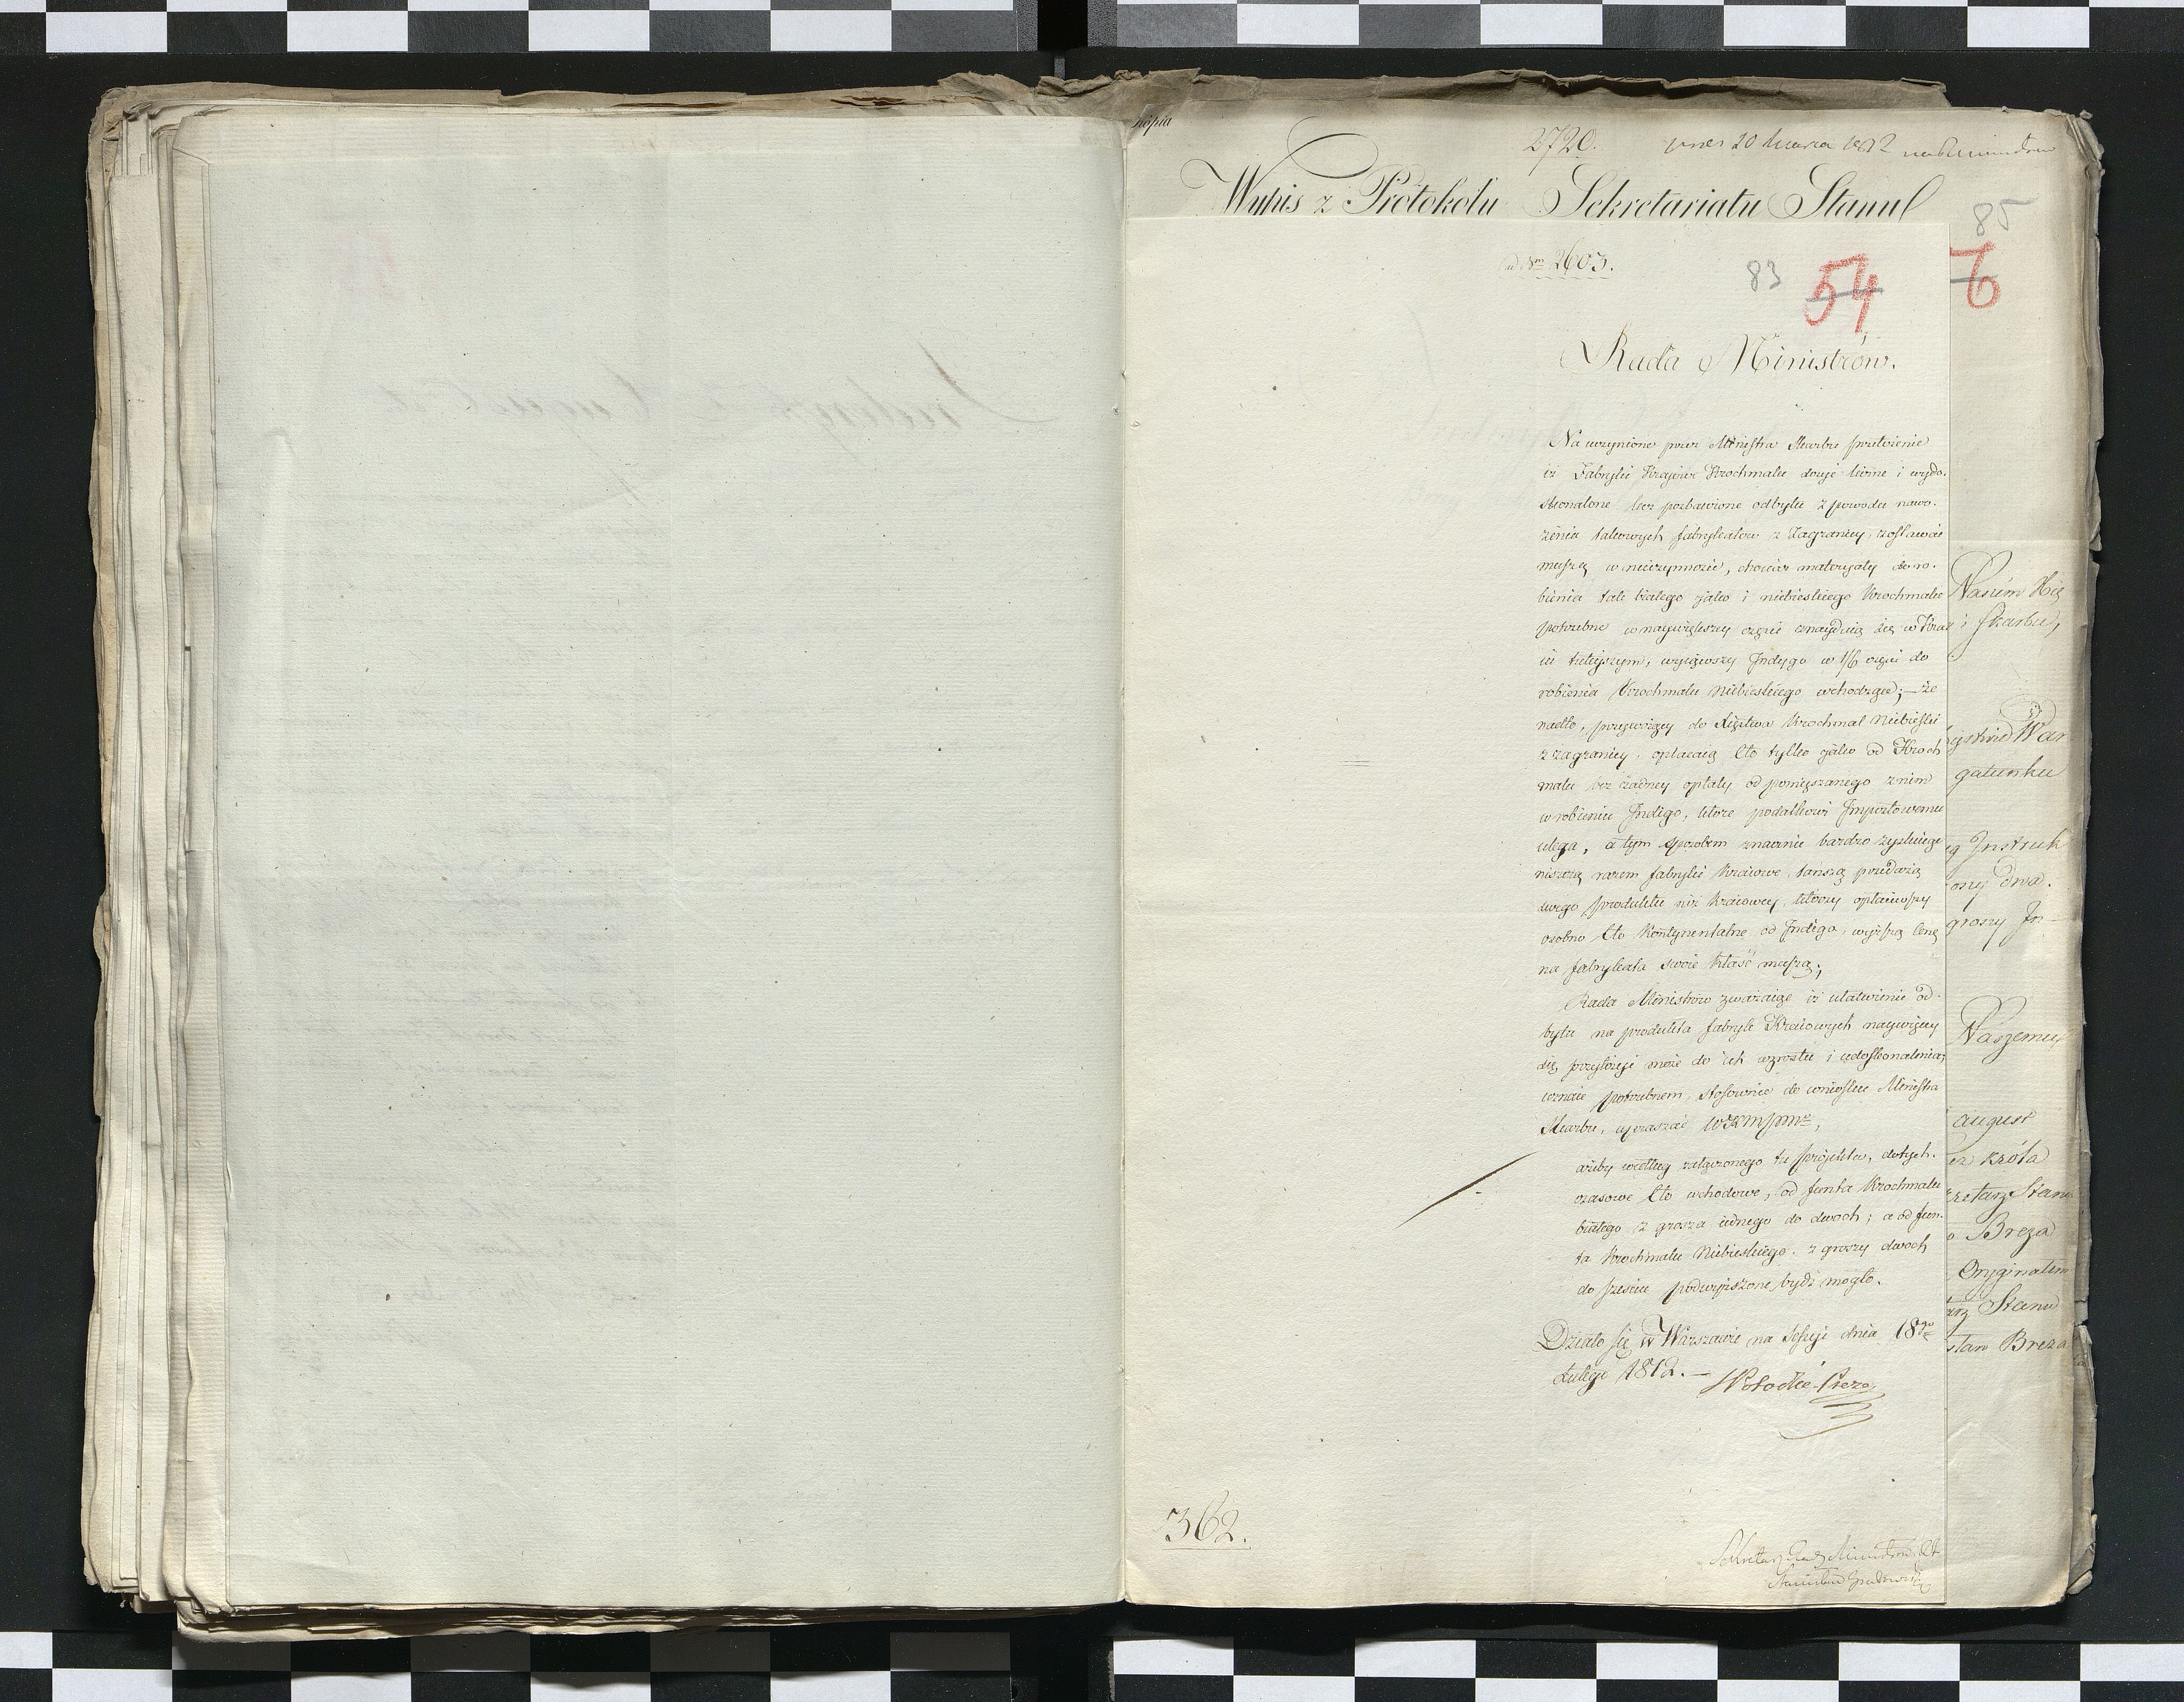 kopia
2720.
Wypis z Protokołu Sekretariatu Stanu
85
ad Nrm 2603.
83 54 76
Rada Ministrów.
Na uczynione przez Ministra Skarbu przełożenie
iż Fabryki Krajowe Krochmalu dosyć liczne i wydo-
skonalone lecz pozbawione odbytu z powodu nawo-
żenia takowych fabrykatów z Zagranicy, zostawać
muszą w nieczynności, chociaż materyały do ro-
bienia tak białego jako i niebieskiego Krochmalu
potrzebne w naywiększey części znayduią się w Kra-
iu tuteyszym, wyiąwszy Indygo w 1/6 części do
robienia Krochmalu Niebieskiego wchodzące; — że
nadto, przywożący do Xięstwa Krochmal Niebieski
z zagranicy, opłacaią Cło tylko jako od Kroch
malu bez żadney opłaty od pomięszanego z nim
w robieniu Indigo, które podatkowi Impostowemu
ulega, a tym sposobem znacznie bardzo zyskuiąc
niszczą razem fabryki Kraiowe, tańszą przedażą
swego produktu niż Kraiowcy, którzy opłaciwszy
osobno Cło Kontynentalne od Indigo, wyższą Cenę
na fabrykata swoie kłaść muszą;
Rada Ministrów zważaiąc iż ułatwienie od-
bytu na produkta fabryk Kraiowych naywięcey
się przyłożyć może do ich wzrostu i udoskonalenia;
uznaie potrzebnem, stosownie do wniosku Ministra
Skarbu, upraszać
ażeby według załączonego tu projektu, dotych-
czasowe Cło wchodowe, od funta Krochmalu
białego z grosza iednego do dwoch; a od fun-
ta Krochmalu Niebieskiego, z groszy dwoch
do sześciu podwyższone bydź mogło.
Działo się w Warszawie na Sessyi dnia 18go
Lutego 1812. —
362.
Sekretarz Rady Ministrów
Naszem Xię
i Skarbu,
War
gatunku
Instruk
dwa.
groszy In-
Naszemu
august
ez Króla
retarz Stanu
Breza
Oryginałem
arz Stanu
Breza